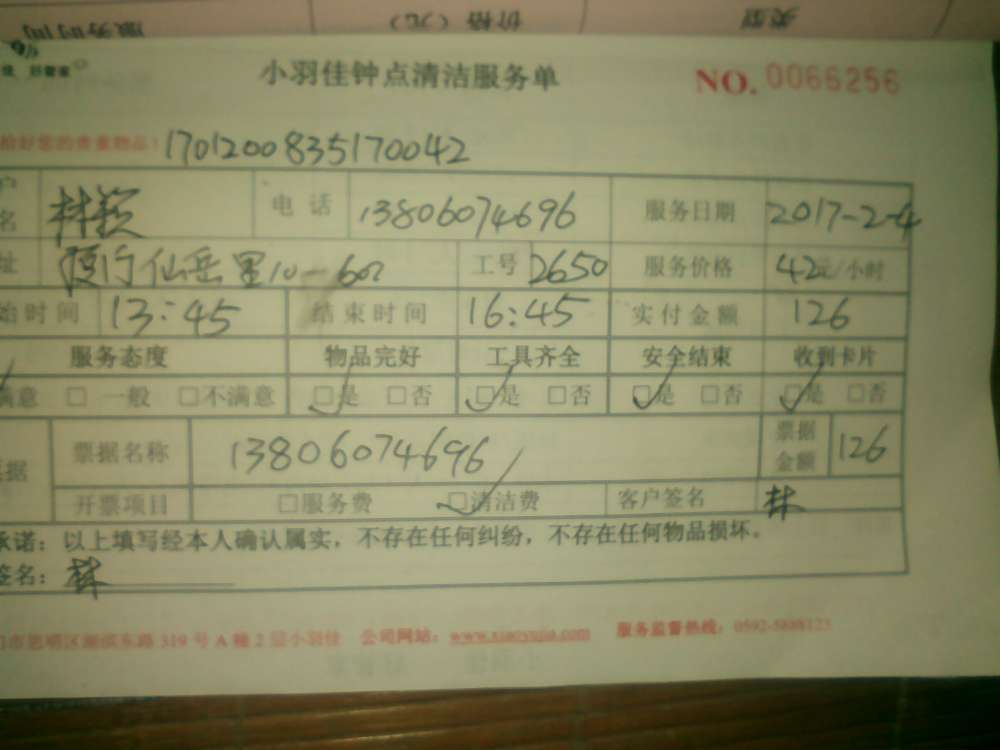 类型 价格（元） 服务时间
佳 好管家
小羽佳钟点清洁服务单 NO. 0066256
恰好您的贵重物品! 1701200835170042
户名 林颖 电话 13806074696 服务日期 2017-2-4
址 仙岳里10-602 工号 2650 服务价格 42元/小时
始时间 13:45 结束时间 16:45 实付金额 126
服务态度 物品完好 工具齐全 安全结束 收到卡片
满意 □ 一般 □不满意 □是 □否 □是 □否 □是 □否 □是 □否
票据 票据名称 13806074696 票据金额 126
开票项目 □服务费 □清洁费 客户签名 林
承诺：以上填写经本人确认属实，不存在任何纠纷，不存在任何物品损坏。
签名：林
门市思明区湖滨东路 319 号 A 栋 2 层小羽佳 公司网站：www.xiaoyujia.com 服务监督热线：0592-5888123